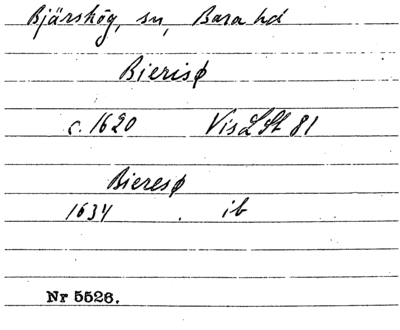 Bjärshög, sn, Bara hd
Bierisø
c. 1620 Vis LSt 81
Bieresø
1634 . ib
Nr 5526.